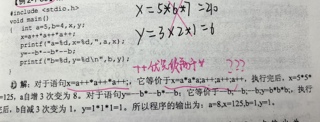 #include <stdio.h>
void main()
{ int a=5,b=4,x,y;
x=a++*a++*a++;
printf("a=%d,x=%d,",a,x);
y=--b*--b*--b;
printf("b=%d,y=%d\n",b,y);
}
x=5*6*1=20
y=3×2×1=6
++优先级高于*
???
解:对于语句x=a++*a++*a++;,它等价于x=a*a*a;a++;a++;a++,执行完后,x=5*5*
=125,a自增3次变为8。对于语句y=--b*--b*--b;它等价于--b;--b;--b;y=b*b*b;,执行
后,b自减3次变为1,y=1*1*1=1。所以程序的输出为:a=8,x=125,b=1,y=1。